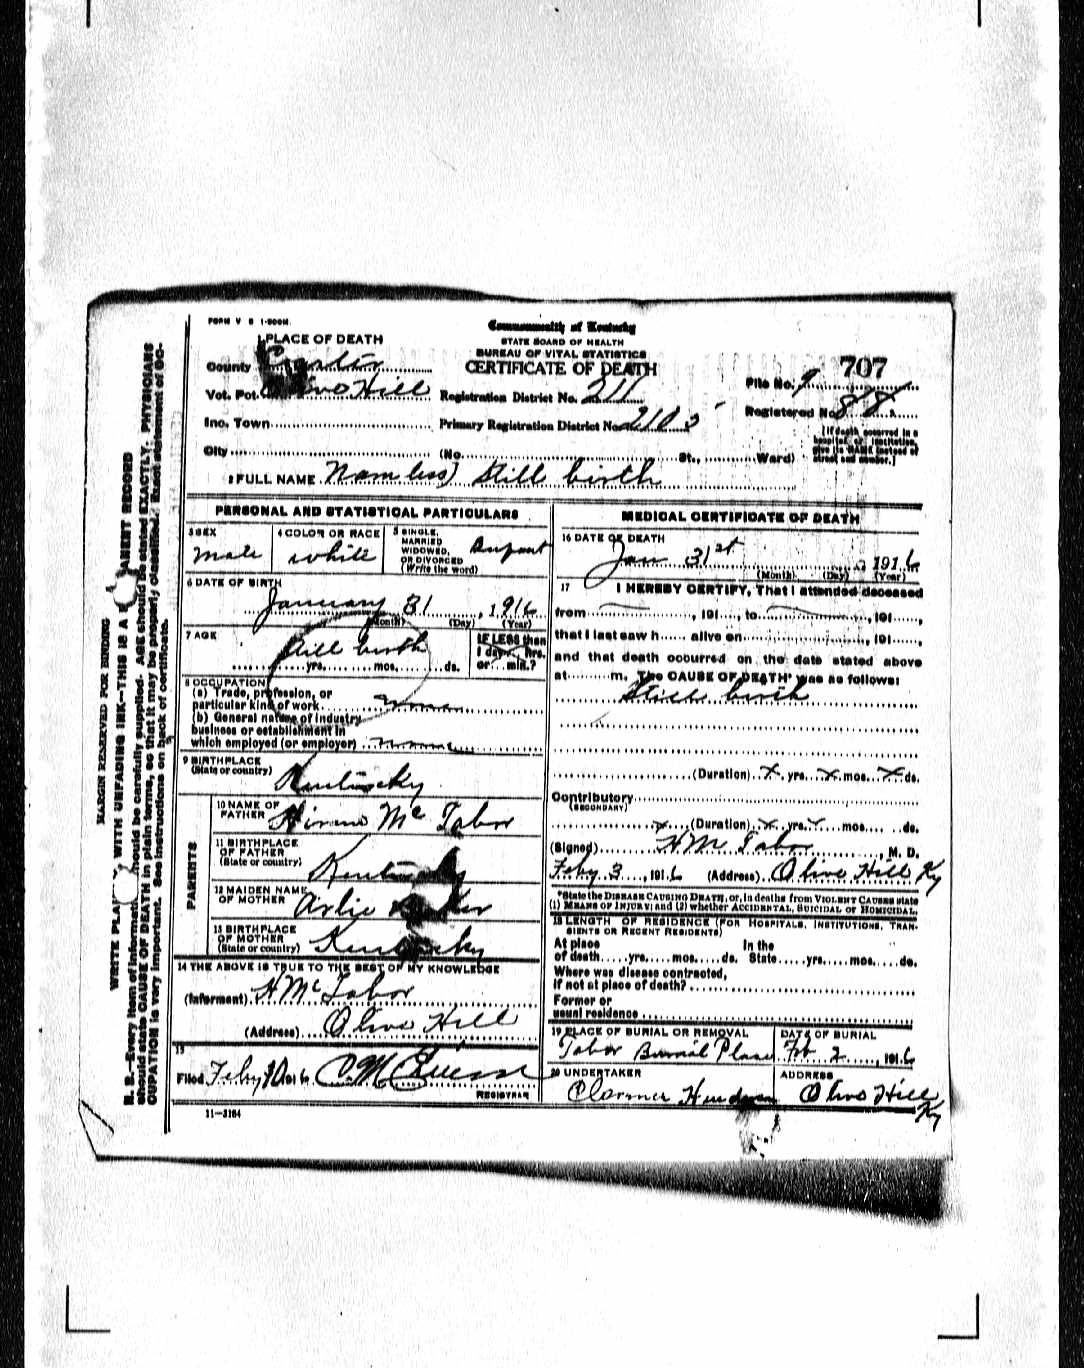 FORM V S 1-500M.
Commonwealth of Kentucky
STATE BOARD OF HEALTH
BUREAU OF VITAL STATISTICS
CERTIFICATE OF DEATH
1 PLACE OF DEATH
County Carter
Vot. Pct. Olive Hill
Inc. Town
City
Registration District No. 211
Primary Registration District No. 2105
(No. St., Ward)
707
File No. 9
Registered No. 88
[If death occurred in a
hospital or institution,
give its NAME instead of
street and number.]
2 FULL NAME Nameless) Still birth
PERSONAL AND STATISTICAL PARTICULARS
3 SEX
Male
4 COLOR OR RACE
White
5 SINGLE,
MARRIED
WIDOWED,
OR DIVORCED
(Write the word)
6 DATE OF BIRTH
January 31, 1916
(Month) (Day) (Year)
7 AGE
Still birth
yrs. mos. ds.
IF LESS than
1 day hrs.
or min.?
8 OCCUPATION
(a) Trade, profession, or
particular kind of work
(b) General nature of industry
business or establishment in
which employed (or employer)
9 BIRTHPLACE
(State or country)
Kentucky
PARENTS
10 NAME OF
FATHER
Mc Tabor
11 BIRTHPLACE
OF FATHER
(State or country)
Kentucky
12 MAIDEN NAME
OF MOTHER
Arlie
13 BIRTHPLACE
OF MOTHER
(State or country)
Kentucky
14 THE ABOVE IS TRUE TO THE BEST OF MY KNOWLEDGE
(Informant) H Mc Tabor
(Address) Olive Hill
15
Filed Feby 10 1916 C M
REGISTRAR
11—3184
MEDICAL CERTIFICATE OF DEATH
16 DATE OF DEATH
Jan 31st, 1916
(Month) (Day) (Year)
17 I HEREBY CERTIFY, That I attended deceased
from , 191 , to , 191 ,
that I last saw h alive on , 191 ,
and that death occurred on the date stated above
at m. The CAUSE OF DEATH* was as follows:
Still birth
(Duration) x yrs. x mos. x ds.
Contributory
(SECONDARY)
(Duration) yrs. mos. ds.
(Signed) H M Tabor, M. D.
Feby 3, 1916 (Address) Olive Hill Ky
*State the DISEASE CAUSING DEATH, or, in deaths from VIOLENT CAUSES state
(1) MEANS OF INJURY; and (2) whether ACCIDENTAL, SUICIDAL OR HOMICIDAL.
18 LENGTH OF RESIDENCE (FOR HOSPITALS, INSTITUTIONS, TRAN-
SIENTS OR RECENT RESIDENTS)
At place In the
of death yrs. mos. ds. State yrs. mos. ds.
Where was disease contracted,
if not at place of death?
Former or
usual residence
19 PLACE OF BURIAL OR REMOVAL
Tabor Burial Place
DATE OF BURIAL
Feb 2, 1916
20 UNDERTAKER
ADDRESS
Olive Hill
Ky
MARGIN RESERVED FOR BINDING
WITH UNFADING INK—THIS IS A PERMANENT RECORD
N. B.—Every item of information should be carefully supplied. AGE should be stated EXACTLY. PHYSICIANS
should state CAUSE OF DEATH in plain terms, so that it may be properly classified. Exact statement of OC-
CUPATION is very important. See instructions on back of certificate.